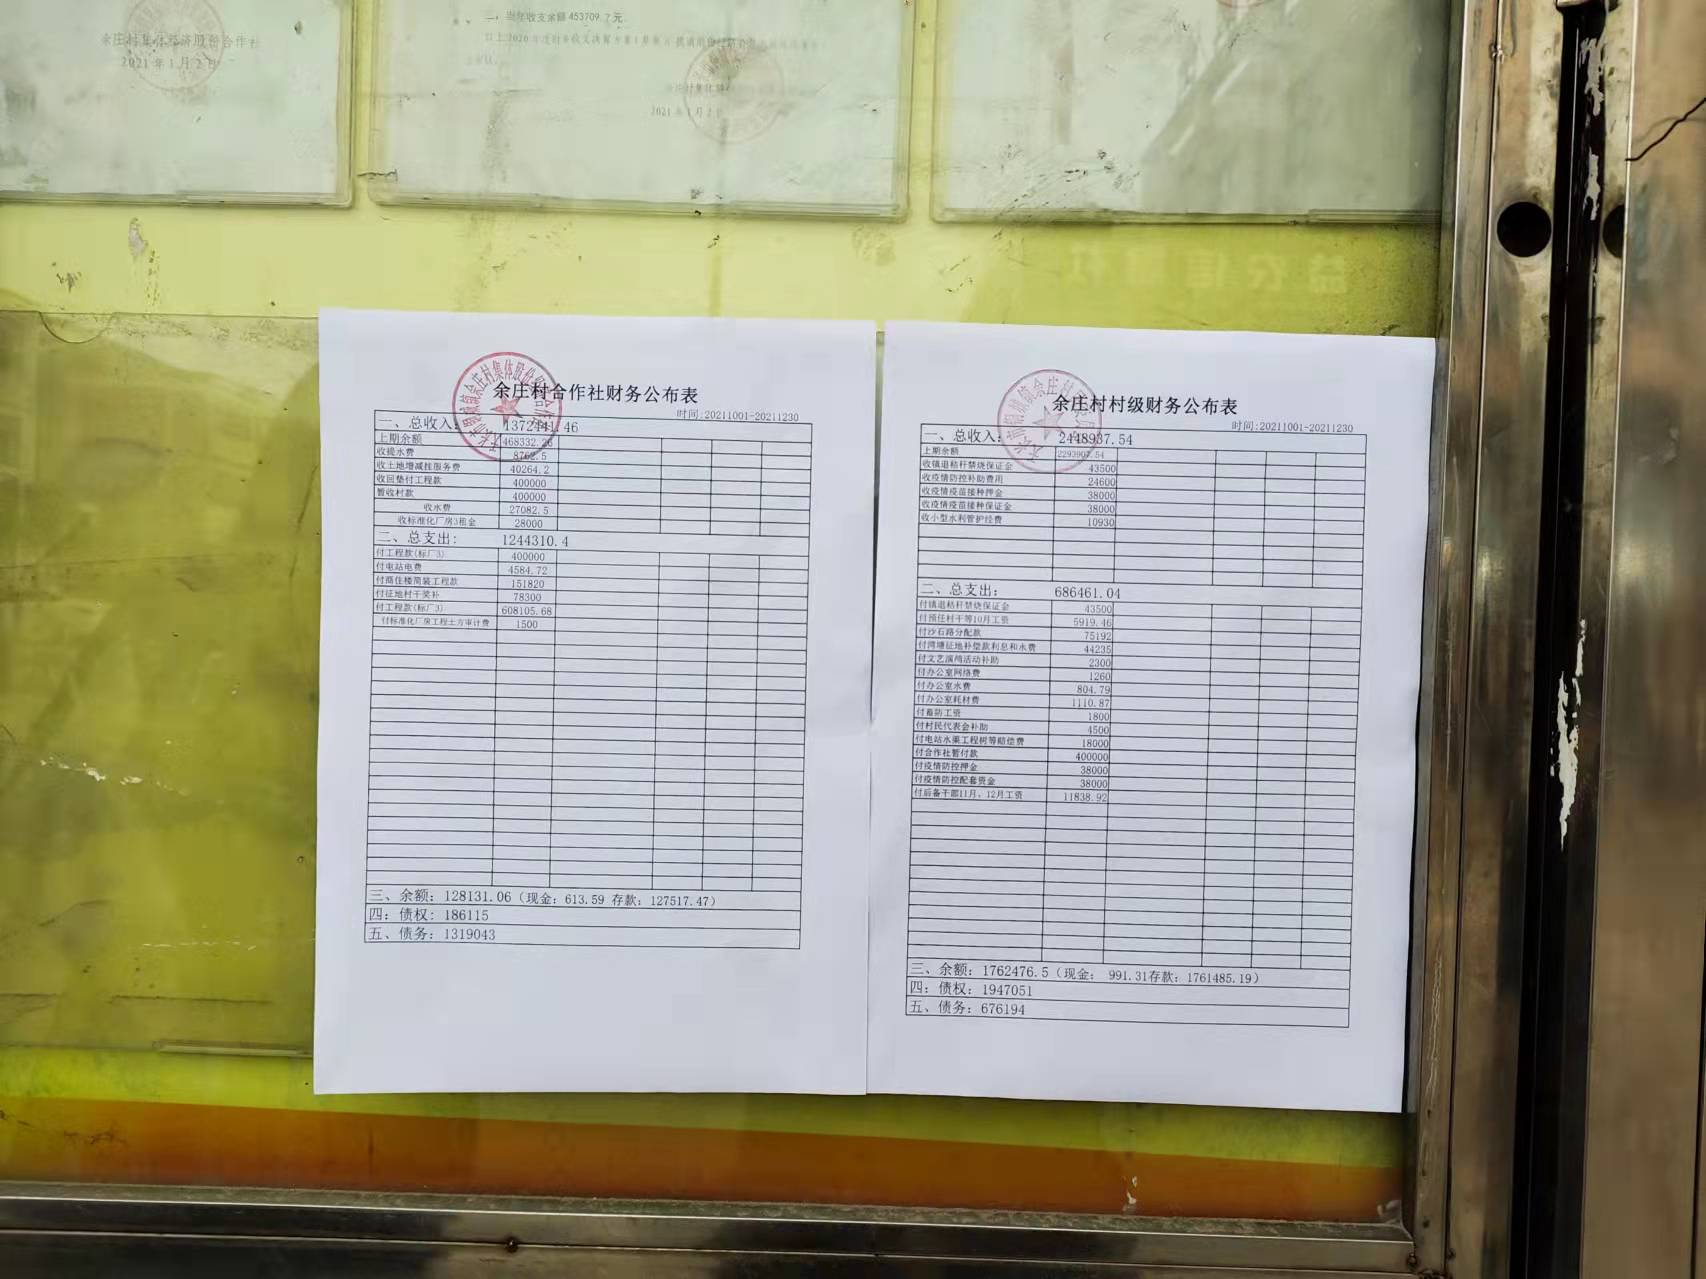 余庄村集体经济股份合作社
2021年1月2日
二、当年收支余额453709.7元.
2021年1月2日
益农信息社
余庄村合作社财务公布表
时间:20211001-20211230
一、总收入: 1372441.46
上期余额 468332.26
收提水费 8762.5
收土地增减挂服务费 40264.2
收回垫付工程款 400000
暂收村款 400000
收水费 27082.5
收标准化厂房3租金 28000
二、总支出: 1244310.4
付工程款(标厂3) 400000
付电站电费 4584.72
付商住楼简装工程款 151820
付征地村干奖补 78300
付工程款(标厂3) 608105.68
付标准化厂房工程土方审计费 1500
三、余额: 128131.06(现金: 613.59 存款: 127517.47)
四: 债权: 186115
五、债务: 1319043
余庄村村级财务公布表
时间:20211001-20211230
一、总收入: 2448937.54
上期余额 2293907.54
收镇退秸秆禁烧保证金 43500
收疫情防控补助费用 24600
收疫情疫苗接种押金 38000
收疫情疫苗接种保证金 38000
收小型水利管护经费 10930
二、总支出: 686461.04
付镇退秸秆禁烧保证金 43500
付预任村干等10月工资 5919.46
付沙石路分配款 75192
付湾塘征地补偿款利息和水费 44235
付文艺演鸬活动补助 2300
付办公室网络费 1260
付办公室水费 804.79
付办公室耗材费 1110.87
付畜防工资 1800
付村民代表会补助 4500
付电站水渠工程树等赔偿费 18000
付合作社暂付款 400000
付疫情防控押金 38000
付疫情防控配套资金 38000
付后备干部11月、12月工资 11838.92
三、余额: 1762476.5(现金: 991.31存款: 1761485.19)
四: 债权: 1947051
五、债务: 676194